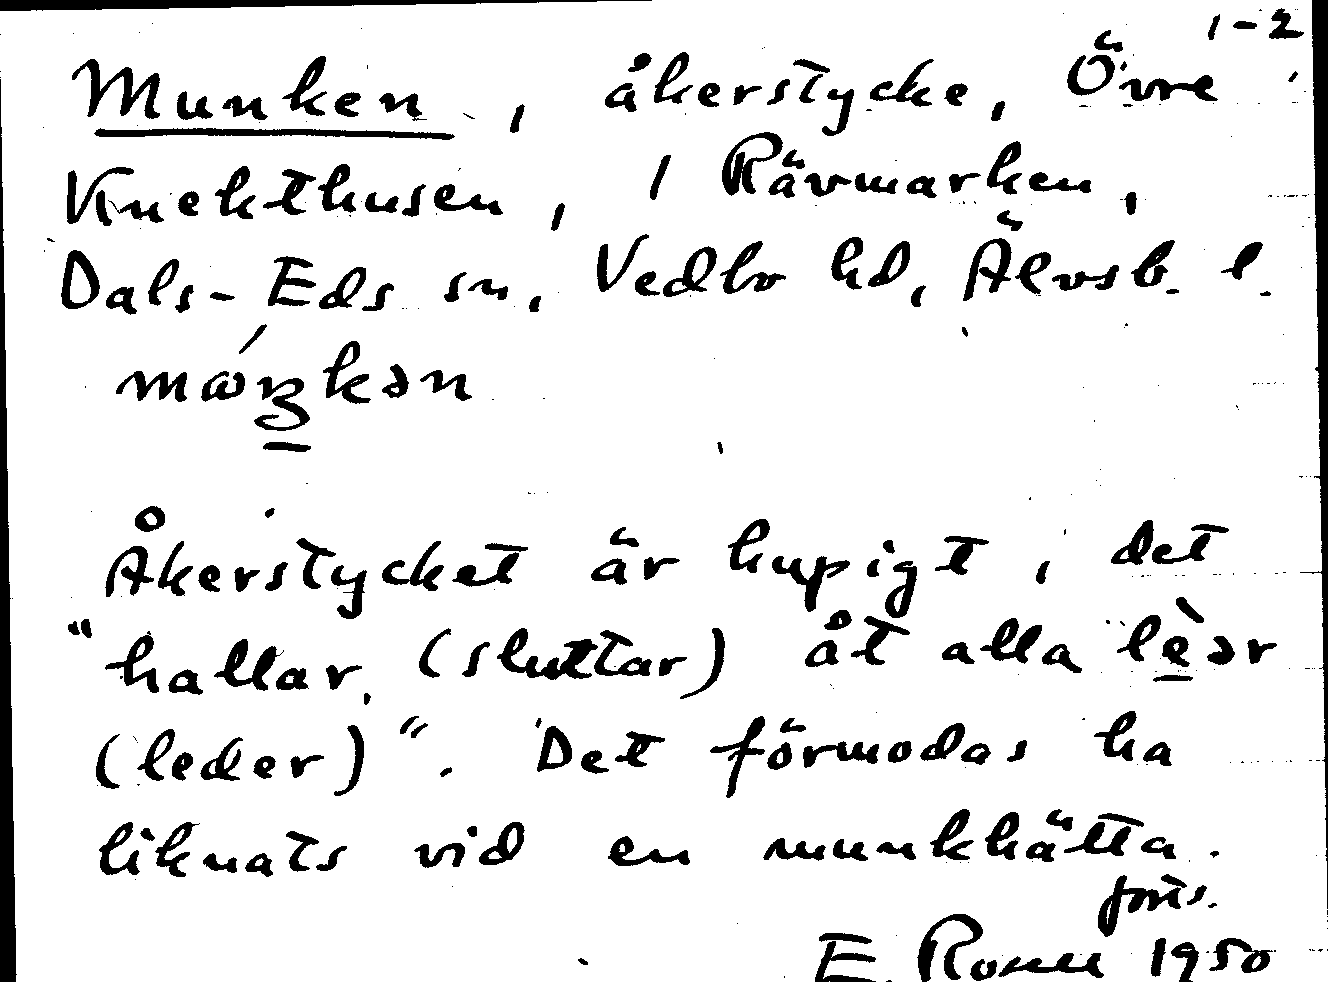 1-2
Munken, åkerstycke, Övre
Knekthusen, 1 Rävmarken,
Dals-Eds sn, Vedbo hd, Älvsb. l.
Åkerstycket är kupigt, det
"hallar (sluttar) åt alla lèər
(leder)". Det förmodas ha
liknats vid en munkhätta.
forts.
E. Rosell 1950